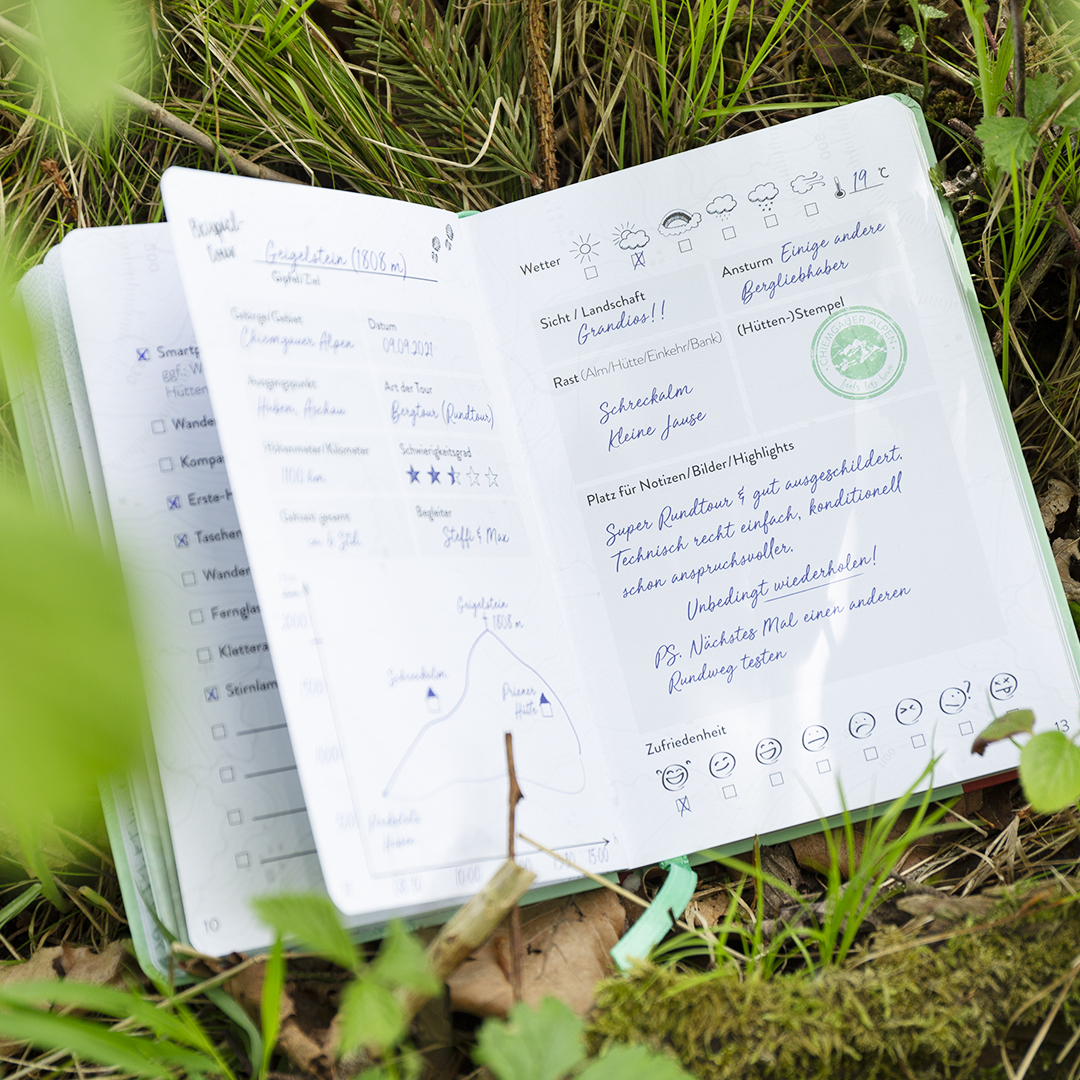 Smartp
ggf.: W
Hütten
Wande
Kompa
Erste-H
Taschen
Wander
Fernglas
Klettera
Stirnlam
10
Beispiel-
tour
Geigelstein (1808 m)
Gipfel/Ziel
Gebirge/Gebiet
Chiemgauer Alpen
Datum
09.09.2021
Ausgangspunkt
Huben, Aschau
Art der Tour
Bergtour (Rundtour)
Höhenmeter/Kilometer
Schwierigkeitsgrad
Gehzeit gesamt
Begleiter
Steffi & Max
Geigelstein
1808 m
Schreckalm
Priener
Hütte
Parkplatz
Huben
10:00
15:00
Wetter
19 °C
Sicht / Landschaft
Grandios!!
Ansturm Einige andere
Bergliebhaber
Rast (Alm/Hütte/Einkehr/Bank)
Schreckalm
Kleine Jause
(Hütten-)Stempel
CHIEMGAUER ALPEN
Platz für Notizen/Bilder/Highlights
Super Rundtour & gut ausgeschildert.
Technisch recht einfach, konditionell
schon anspruchsvoller.
Unbedingt wiederholen!
PS. Nächstes Mal einen anderen
Rundweg testen
Zufriedenheit
13